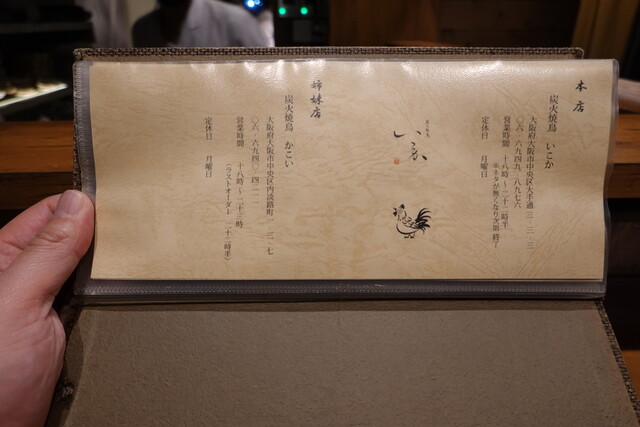 本店
炭火焼鳥 いこか
大阪府大阪市中央区大手通三-三-三
〇六-六九四九-八九七六
営業時間 十八時~二十二時半
※ネタが無くなり次第 終了
定休日 月曜日
姉妹店
炭火焼鳥 かこい
大阪府大阪市中央区内淡路町
営業時間 十八時~二十三時
(ラストオーダー 二十二時半)
定休日 月曜日